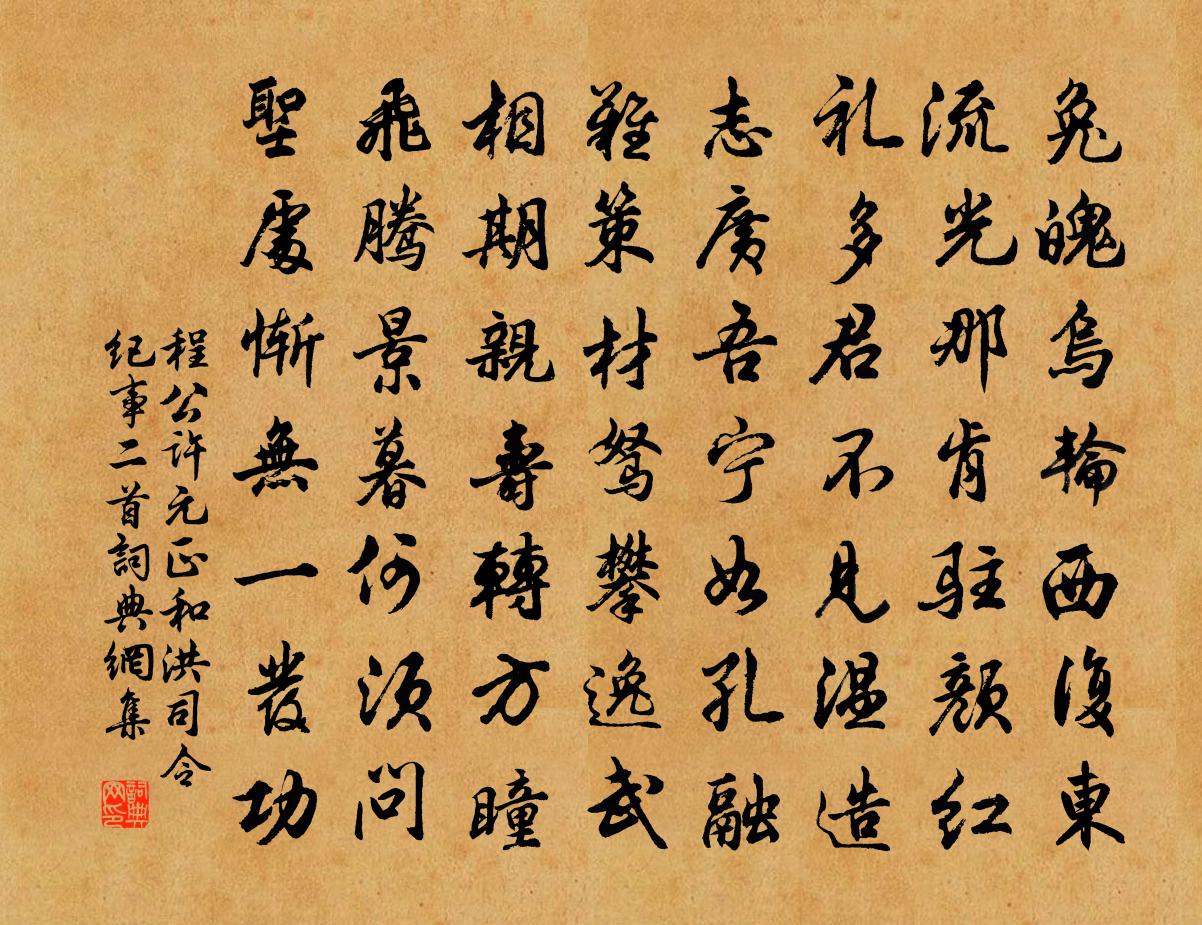 兔魄烏輪西復東
流光那肯駐顏紅
礼多君不見温造
志廣吾寧如孔融
難策材駑攀逸武
相期親壽轉方瞳
飛騰景暮何須問
聖處慚無一發功
程公許元正和洪司令
紀事二首詞典網集
詞典网印